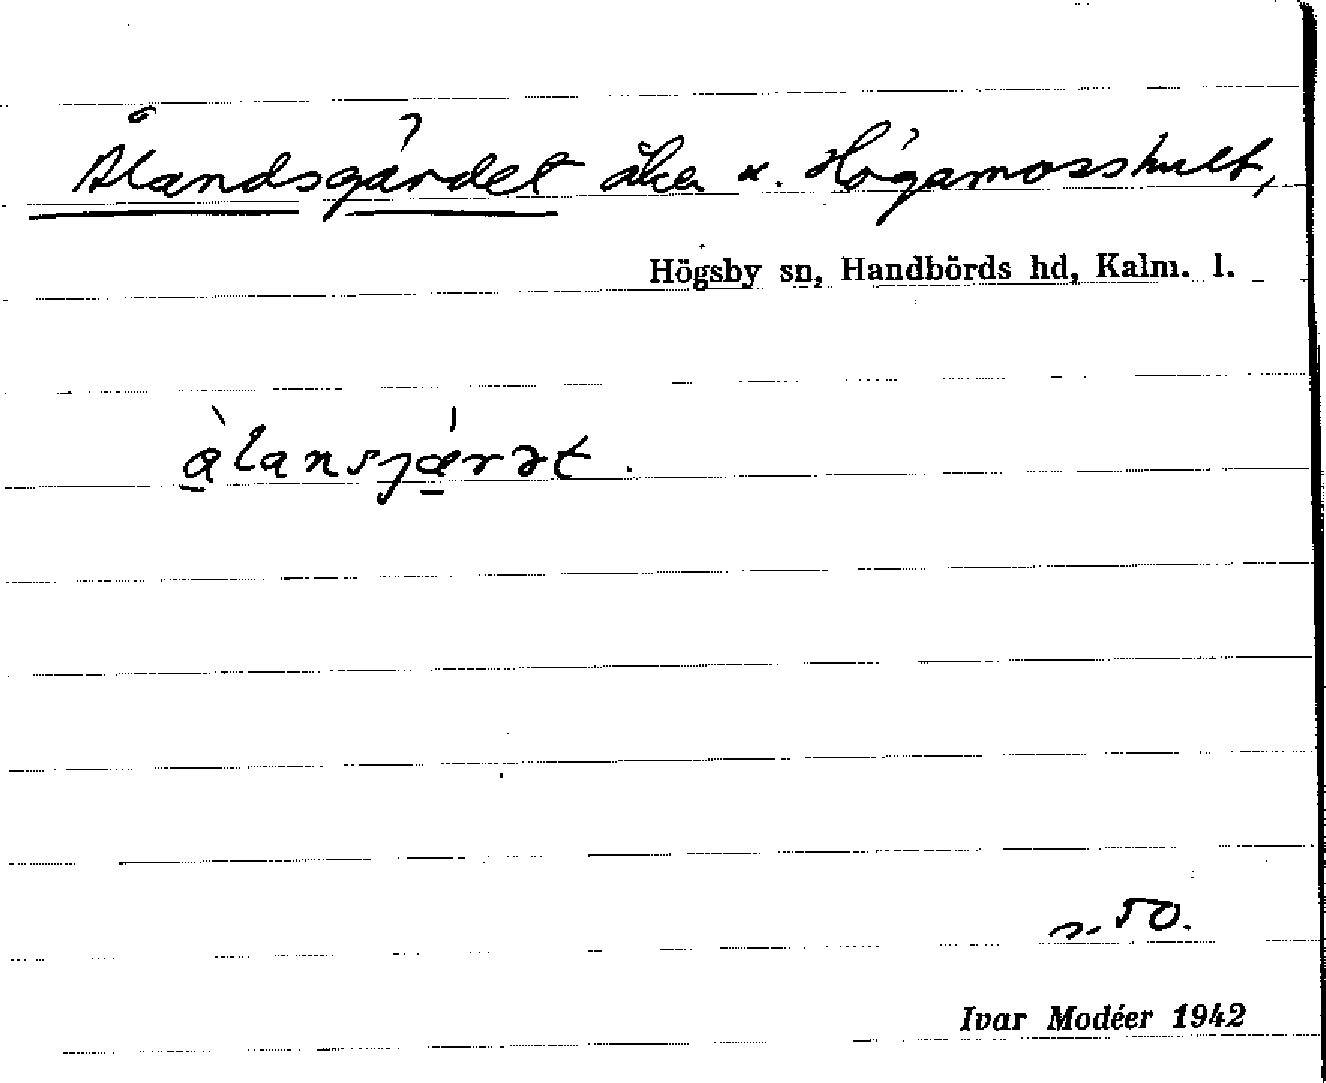 Ålandsgärdet åker u. Högamosshult,
Högsby sn, Handbörds hd, Kalm. l.
à̱lansjǽ̱rət.
n. 50.
Ivar Modéer 1942